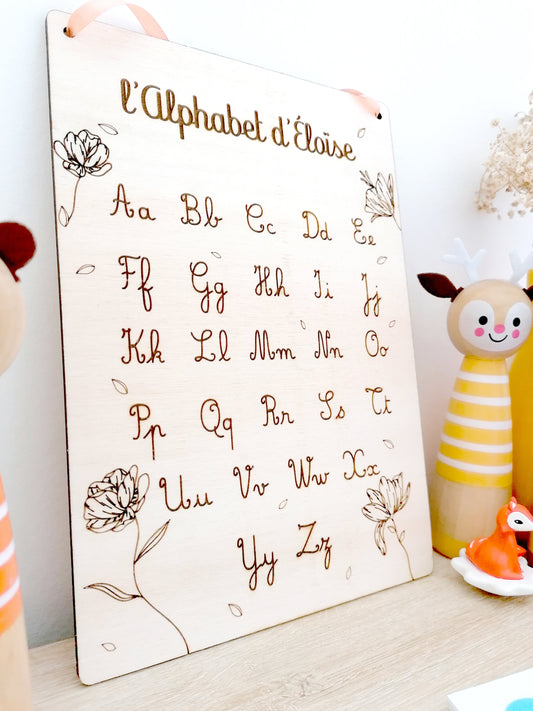 l'Alphabet d'Éloïse
Aa Bb Cc Dd Ee
Ff Gg Hh Ii Jj
Kk Ll Mm Nn Oo
Pp Qq Rr Ss Tt
Uu Vv Ww Xx
Yy Zz